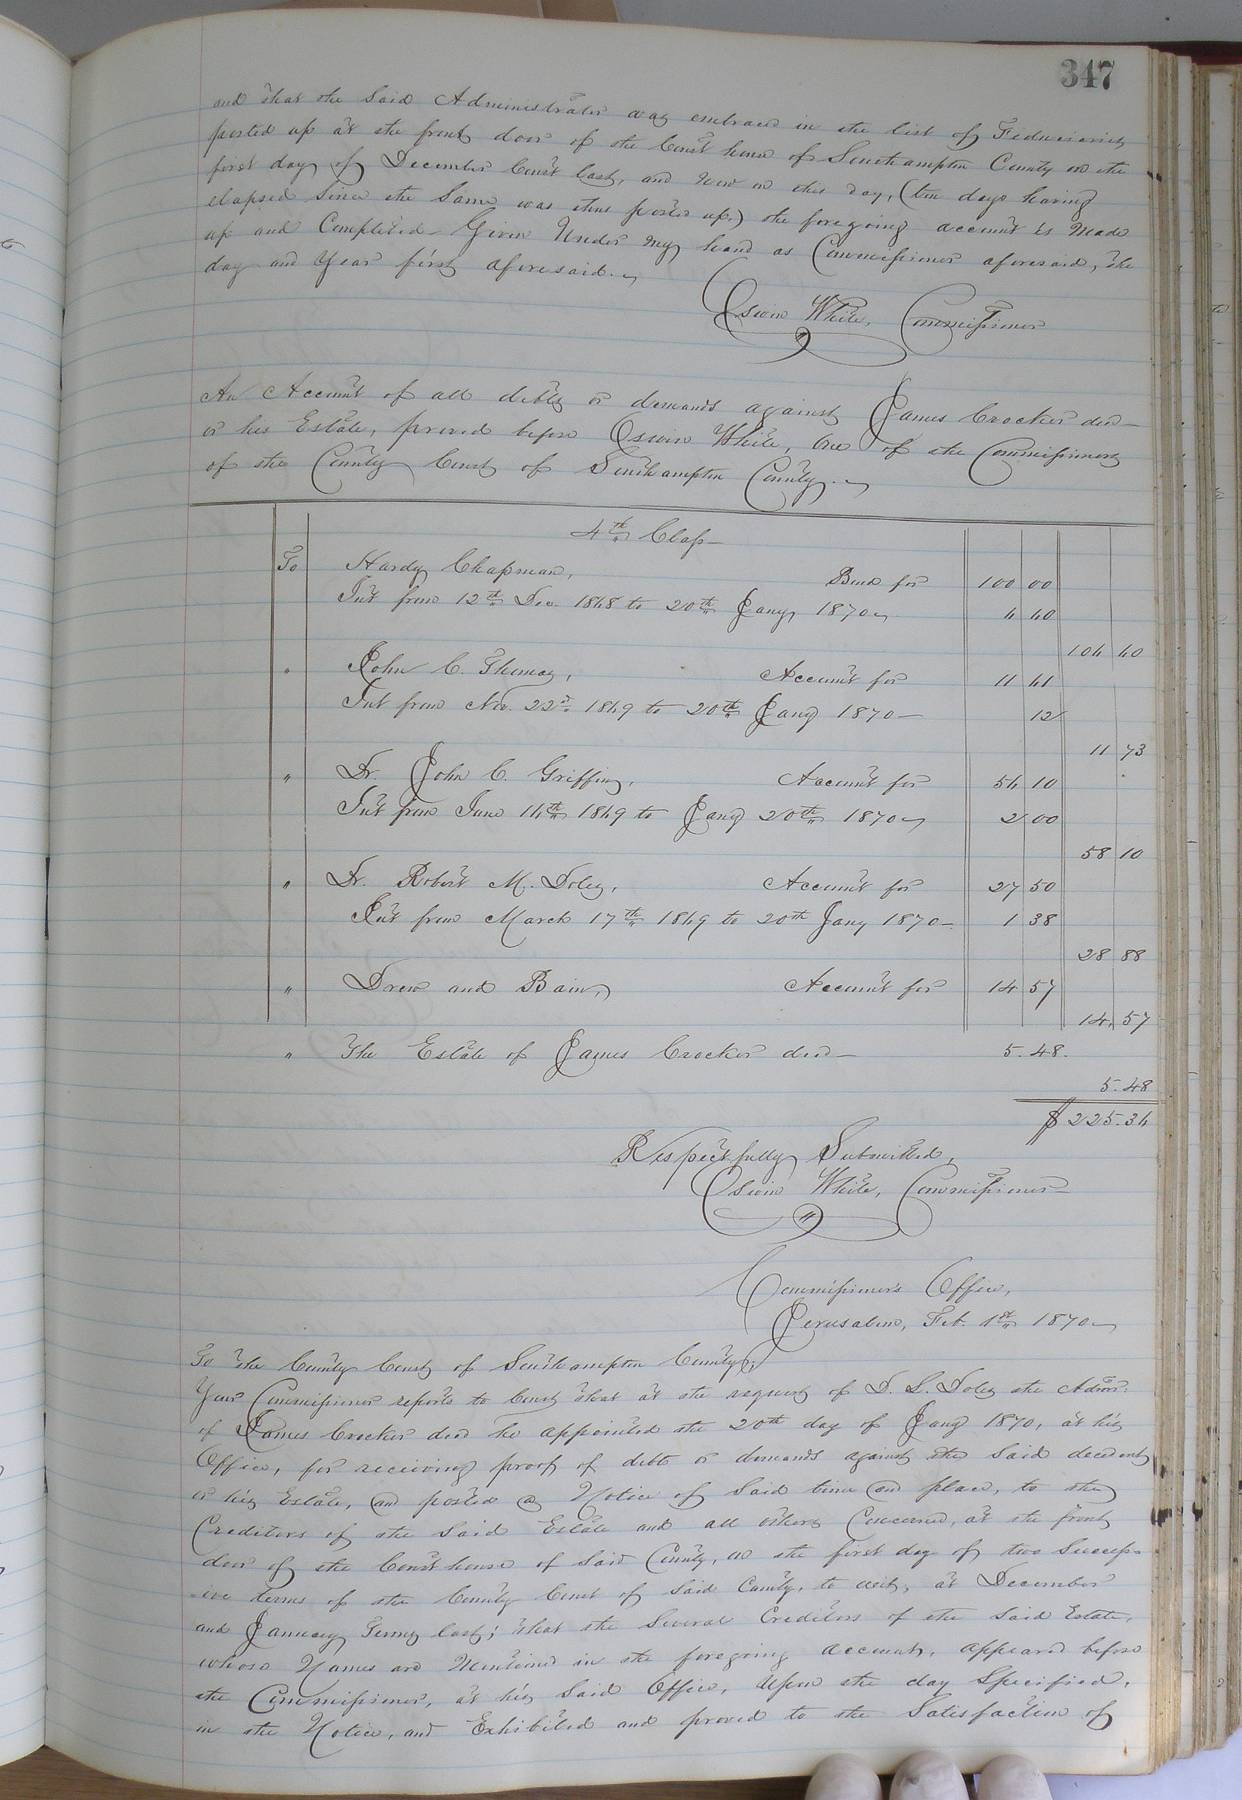 347
and that the said Administrator was embraced in the list of Fiduciaries
posted up at the front door of the Court house of Southampton County on the
first day of December Court last, and now on this day, (ten days having
elapsed since the same was thus posted up,) the foregoing account is made
up and Completed. Given Under my hand as Commissioner aforesaid, the
day and Year first aforesaid.
Oswin White, Commissioner
An Account of all debts or demands against James Crocker decd
or his Estate, proved before Oswin White, One of the Commissioners
of the County Court of Southampton County.
4th Class
To Hardy Chapman, Bond for 100 00
Int from 12th Dec. 1868 to 20th Jany 1870 4 40
104 40
" John C. Thomas, Account for 11 61
Int from Nov. 22d 1869 to 20th Jany 1870 12
11 73
" Dr. John C. Griffin, Account for 56 10
Int from June 14th 1869 to Jany 20th 1870 2 00
58 10
" Dr. Robert M. Doles, Account for 27 50
Int from March 17th 1869 to 20th Jany 1870 1 38
28 88
" Drew and Bain, Account for 14 57
14 57
" The Estate of James Crocker decd 5.48.
5.48
$225.34
Respectfully Submitted,
Oswin White, Commissioner
Commissioner's Office,
Jerusalem, Feb. 1st 1870
To the County Court of Southampton County,
Your Commissioner reports to Court that at the request of D. S. Doles the Admr.
of James Crocker decd he appointed the 20th day of Jany 1870, at his
Office, for receiving proof of debts or demands against the said decedent
or his Estate, and posted a Notice of Said time and place, to the
Creditors of the Said Estate and all others Concerned, at the front
door of the Court house of Said County, on the first day of two Success-
-ive terms of the County Court of Said County, to wit, at December
and January Terms last; that the Several Creditors of the Said Estate,
whose Names are Mentioned in the foregoing account, appeared before
the Commissioner, at his Said Office, Upon the day Specified,
in the Notice, and Exhibited and proved to the Satisfaction of